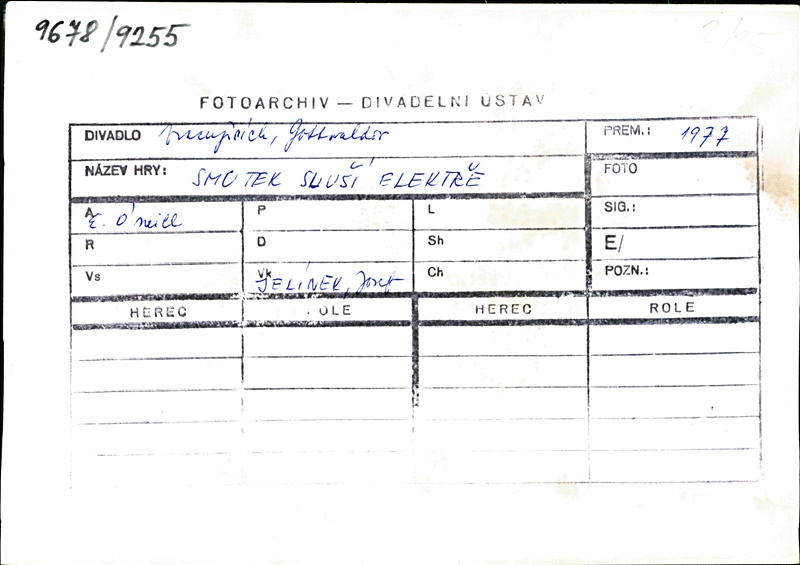 9678/9255
FOTOARCHIV — DIVADELNÍ ÚSTAV
DIVADLO pracujících, Gottwaldov PREM.: 1977
NÁZEV HRY: SMUTEK SLUŠÍ ELEKTŘE FOTO
A E. O'neill P L SIG.:
R D Sh E/
Vs Vk JELÍNEK, Josef Ch POZN.:
HEREC ROLE HEREC ROLE